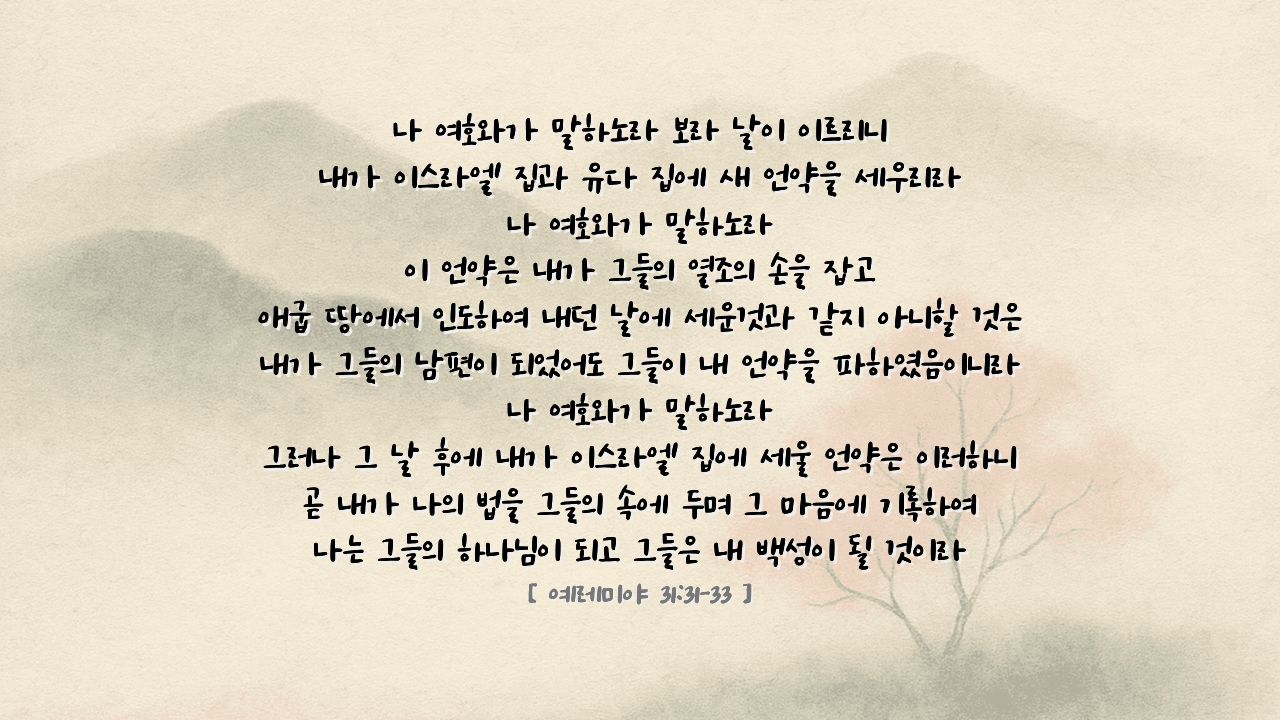 나 여호와가 말하노라 보라 날이 이르리니
내가 이스라엘 집과 유다 집에 새 언약을 세우리라
나 여호와가 말하노라
이 언약은 내가 그들의 열조의 손을 잡고
애굽 땅에서 인도하여 내던 날에 세운것과 같지 아니할 것은
내가 그들의 남편이 되었어도 그들이 내 언약을 파하였음이니라
나 여호와가 말하노라
그러나 그 날 후에 내가 이스라엘 집에 세울 언약은 이러하니
곧 내가 나의 법을 그들의 속에 두며 그 마음에 기록하여
나는 그들의 하나님이 되고 그들은 내 백성이 될 것이라
[ 예레미야 31:31-33 ]